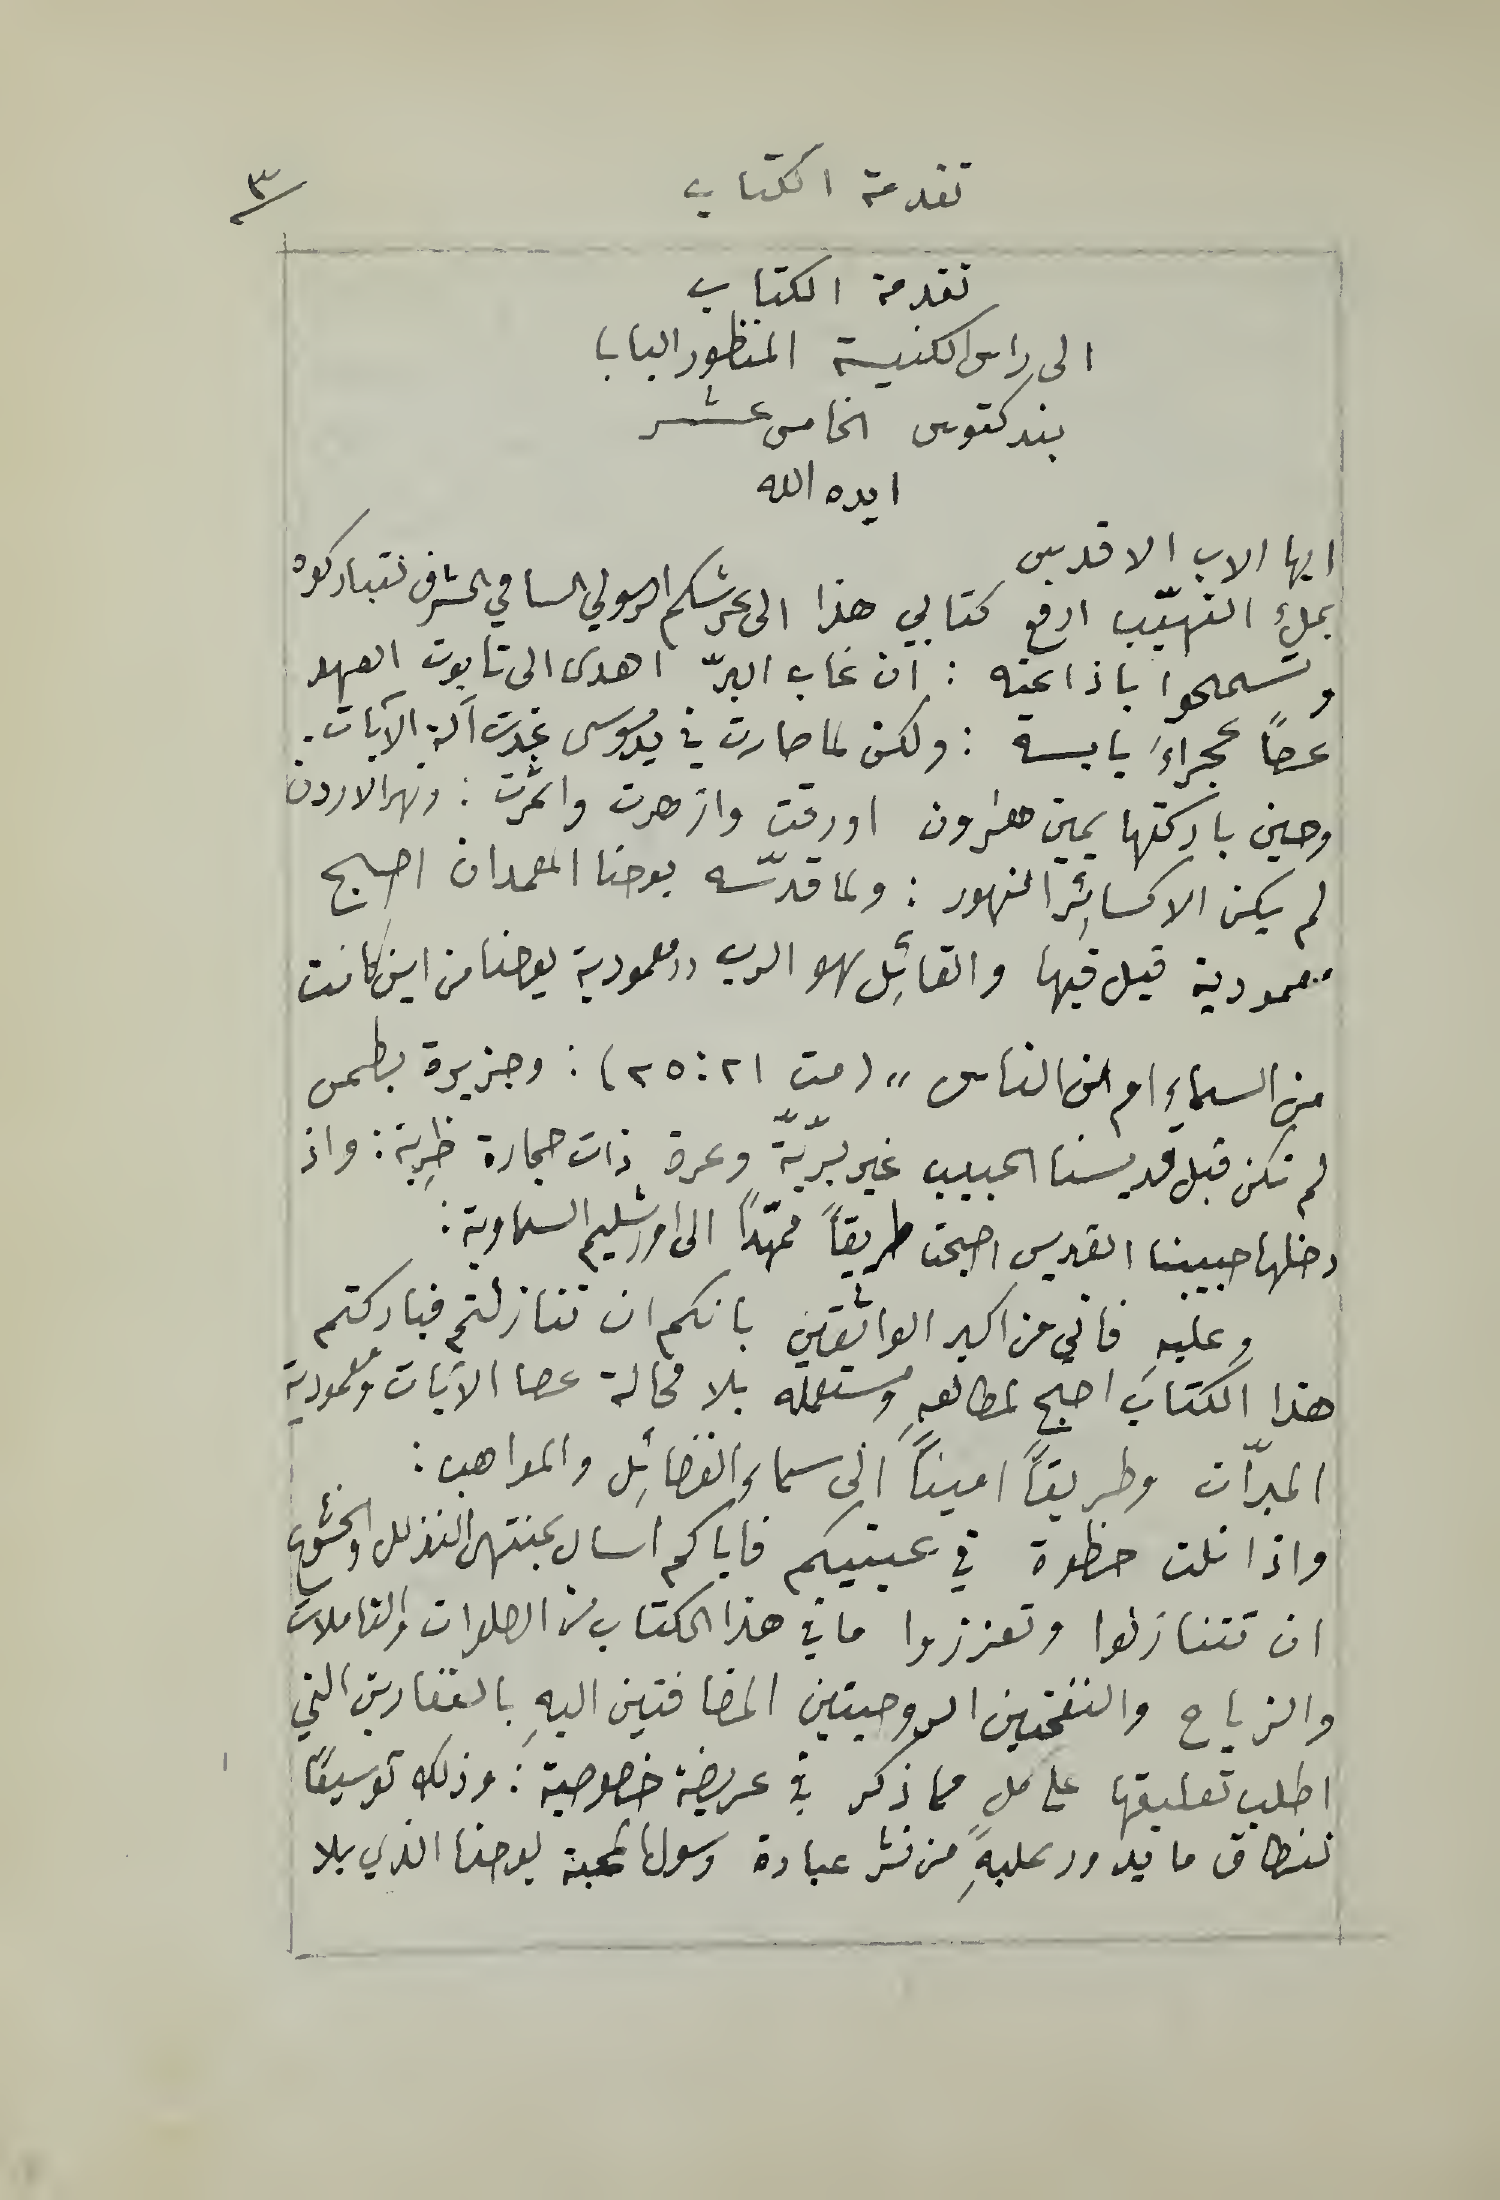 تقدمة الكتاب
٣
تقدمة الكتاب
الى راس الكنيسة المنظور البابا
بندكتوس الخامس عشر
ايده الله
ايها الاب الاقدس
بملءِ التهيّب ارفع كتابي هذا الى عرشكم الرسولي السامي الشرف لتباركوه
وتسمحوا باذاعته : ان غاب البرّ اهدى الى تابوت العهد
عصاً عجراءَ يابسة : ولكن لما صارت في يد موسى غدت آلة الآيات .
وحين باركتها يمين هرون اورقت وازهرت واثمرت : ونهر الاردن
لم يكن الا كسائر النهور : ولما قدّسه يوحنا المعمدان اصبح
معمودية قيل فيها والقائِل هو الرب «معمودية يوحنا من اين كانت
من السماءِ ام من الناس » (مت ٢١:٢٥) : وجزيرة بطمس
لم تكن قبل قديسنا الحبيب غير برّيّة وعرة ذات حجارة ظرِبة : واذ
دخلها حبيبنا القديس اصبحت طريقاً ممهّداً الى اورشليم السماوية :
وعليهِ فاني من اكبر الواثقين بانكم ان تنازلتم فباركتم
هذا الكتابَ اصبح لمطالعهِ ومستعملهِ بلا محالة عصا الآيات ومعمودية
المبرّات وطريقاً اميناً الى سماءِ الفضائِل والمواهب :
واذا نلت حظوة في عينيكم فاياكم اسال بمنتهى التذلل والخشوع
ان تتنازلوا وتعززوا ما في هذا الكتاب من الصلوات والتاملات
والزياح والنفحتين الروحيتين المضافتين اليهِ بالغفارين التي
اطلب تعليقها على كل مما ذكر في عريضة خصوصية : وذلك توسيعًا
لنطاق ما يدور عليهِ من نشر عبادة رسول المحبة يوحنا الذي بلا